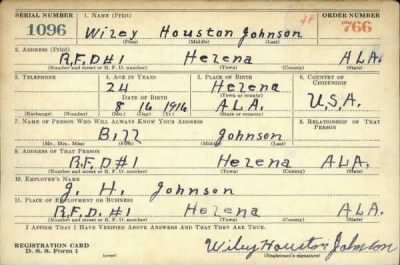 SERIAL NUMBER 1. NAME (Print) ORDER NUMBER
1096 Wiley Houston Johnson 766
(First) (Middle) (Last)
2. ADDRESS (Print)
R.F.D#1 Helena ALA.
(Number and street or R. F. D. number) (Town) (County) (State)
3. TELEPHONE 4. AGE IN YEARS 5. PLACE OF BIRTH 6. COUNTRY OF CITIZENSHIP
24 Helena
DATE OF BIRTH (Town or county)
8 16 1916 ALA. U.S.A.
(Exchange) (Number) (Mo.) (Day) (Yr.) (State or country)
7. NAME OF PERSON WHO WILL ALWAYS KNOW YOUR ADDRESS 8. RELATIONSHIP OF THAT PERSON
Bill Johnson
(Mr., Mrs., Miss) (First) (Middle) (Last)
9. ADDRESS OF THAT PERSON
R.F.D#1 Helena ALA.
(Number and street or R. F. D. number) (Town) (County) (State)
10. EMPLOYER'S NAME
J. H. Johnson
11. PLACE OF EMPLOYMENT OR BUSINESS
R.F.D. #1 Helena ALA.
(Number and street or R. F. D. number) (Town) (County) (State)
I AFFIRM THAT I HAVE VERIFIED ABOVE ANSWERS AND THAT THEY ARE TRUE.
REGISTRATION CARD Wiley Houston Johnson
D. S. S. Form 1 (over) (Registrant's signature)